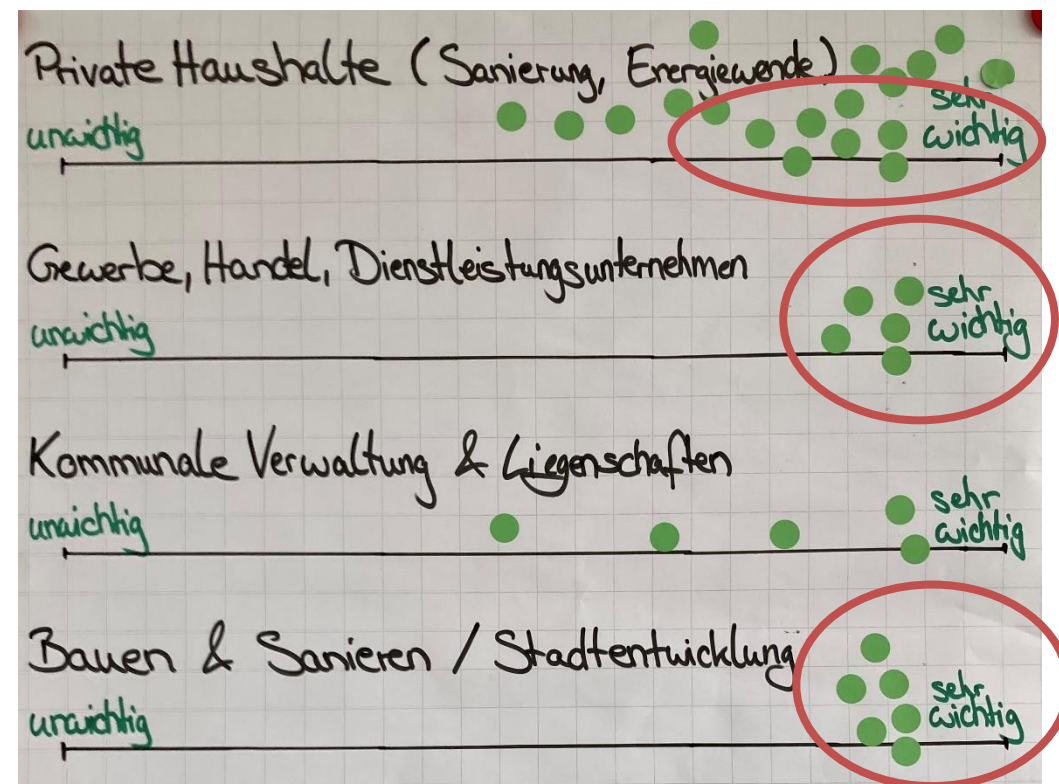 Private Haushalte (Sanierung, Energiewende)
unwichtig sehr wichtig
Gewerbe, Handel, Dienstleistungsunternehmen
unwichtig sehr wichtig
Kommunale Verwaltung & Liegenschaften
unwichtig sehr wichtig
Bauen & Sanieren / Stadtentwicklung
unwichtig sehr wichtig